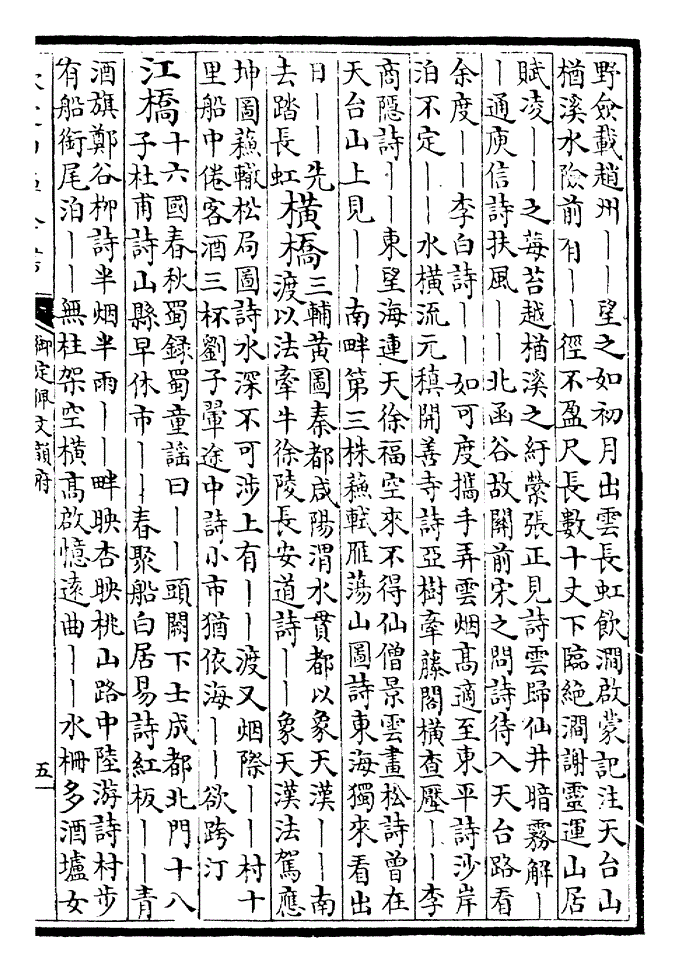 野僉載趙州丨丨望之如初月出雲長虹飲澗啟蒙記注天台山
楢溪水險前有丨丨徑不盈尺長數十丈下臨絶澗謝靈運山居
賦凌丨丨之莓苔越楢溪之紆縈張正見詩雲歸仙井暗霧解丨
丨通庾信詩扶風丨丨北函谷故關前宋之問詩待入天台路看
余度丨丨李白詩丨丨如可度攜手弄雲烟高適至東平詩沙岸
泊不定丨丨水橫流元稹開善寺詩亞樹牽藤閣橫查壓丨丨李
商隱詩丨丨東望海連天徐福空來不得仙僧景雲畫松詩曾在
天台山上見丨丨南畔第三株蘇軾雁蕩山圖詩東海獨來看出
日丨丨先
去踏長虹
橫橋
三輔黄圖秦都咸陽渭水貫都以象天漢丨丨南
渡以法牽牛徐陵長安道詩丨丨象天漢法駕應
坤圖蘇轍松局圖詩水深不可涉上有丨丨渡又烟際丨丨村十
里船中倦客酒三杯劉子翬途中詩小市猶依海丨丨欲跨汀
江橋
十六國春秋蜀録蜀童謡曰丨丨頭闕下士成都北門十八
子杜甫詩山縣早休市丨丨春聚船白居易詩紅板丨丨青
酒旗鄭谷柳詩半烟半雨丨丨畔映杏映桃山路中陸游詩村步
有船銜尾泊丨丨無柱架空橫高啟憶遠曲丨丨水柵多酒壚女
御定佩文韻府
五